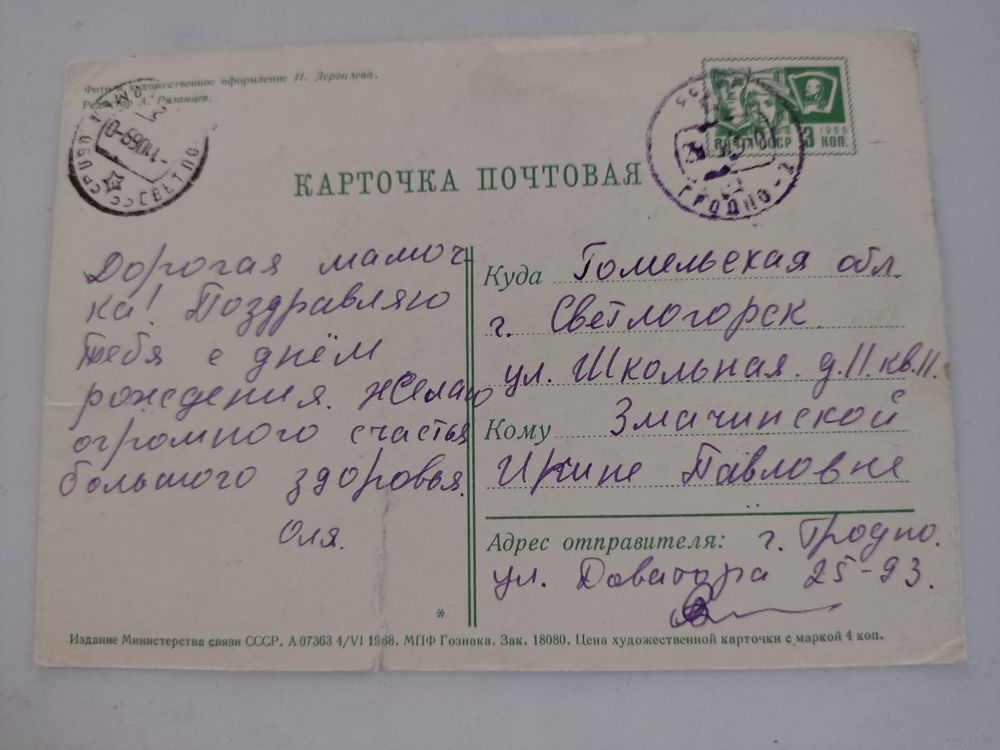 Фото и художественное оформление И. Дергилева.
Редактор А. Рязанцев.
ПОЧТА СССР 3 КОП.
1966
ГРОДНО-2
КАРТОЧКА ПОЧТОВАЯ
Дорогая мамоч-
ка! Поздравляю
тебя с днём
рождения. Желаю
огромного счастья
большого здоровья.
Оля.
Куда Гомельская обл.
г. Светлогорск
ул. Школьная д.11 кв.11.
Кому Змачинской
Ирине Павловне
Адрес отправителя: г. Гродно.
ул. Доватора 25-93.
*
Издание Министерства связи СССР. А 07363 4/VI 1968. МПФ Гознака. Зак. 18080. Цена художественной карточки с маркой 4 коп.